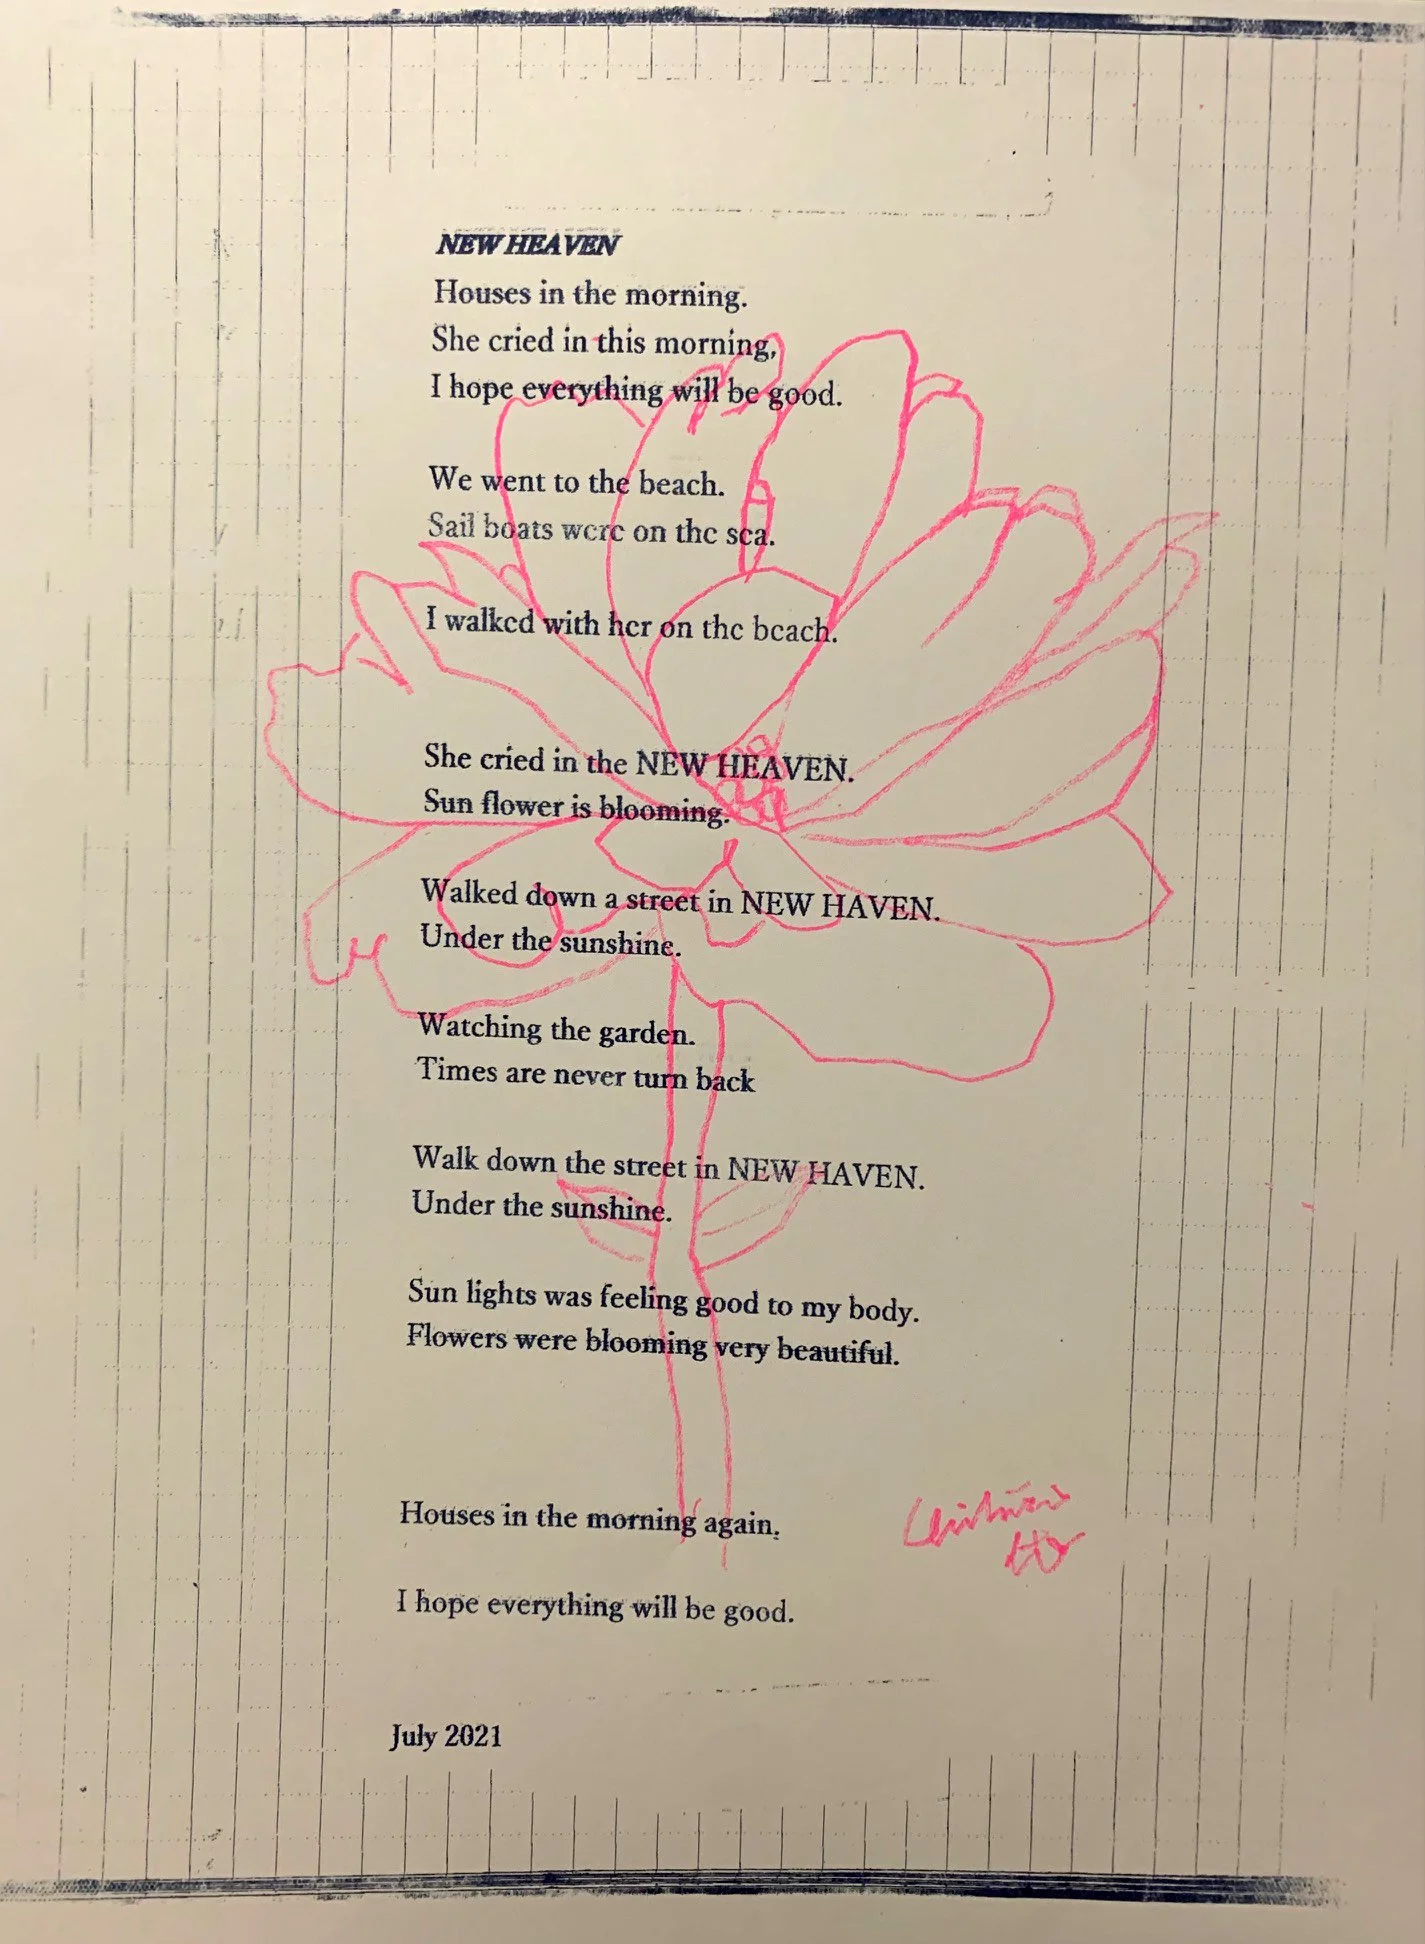 NEW HEAVEN
Houses in the morning.
She cried in this morning,
I hope everything will be good.
We went to the beach.
Sail boats were on the sea.
I walked with her on the beach.
She cried in the NEW HEAVEN.
Sun flower is blooming.
Walked down a street in NEW HAVEN.
Under the sunshine.
Watching the garden.
Times are never turn back
Walk down the street in NEW HAVEN.
Under the sunshine.
Sun lights was feeling good to my body.
Flowers were blooming very beautiful.
Houses in the morning again.
I hope everything will be good.
July 2021